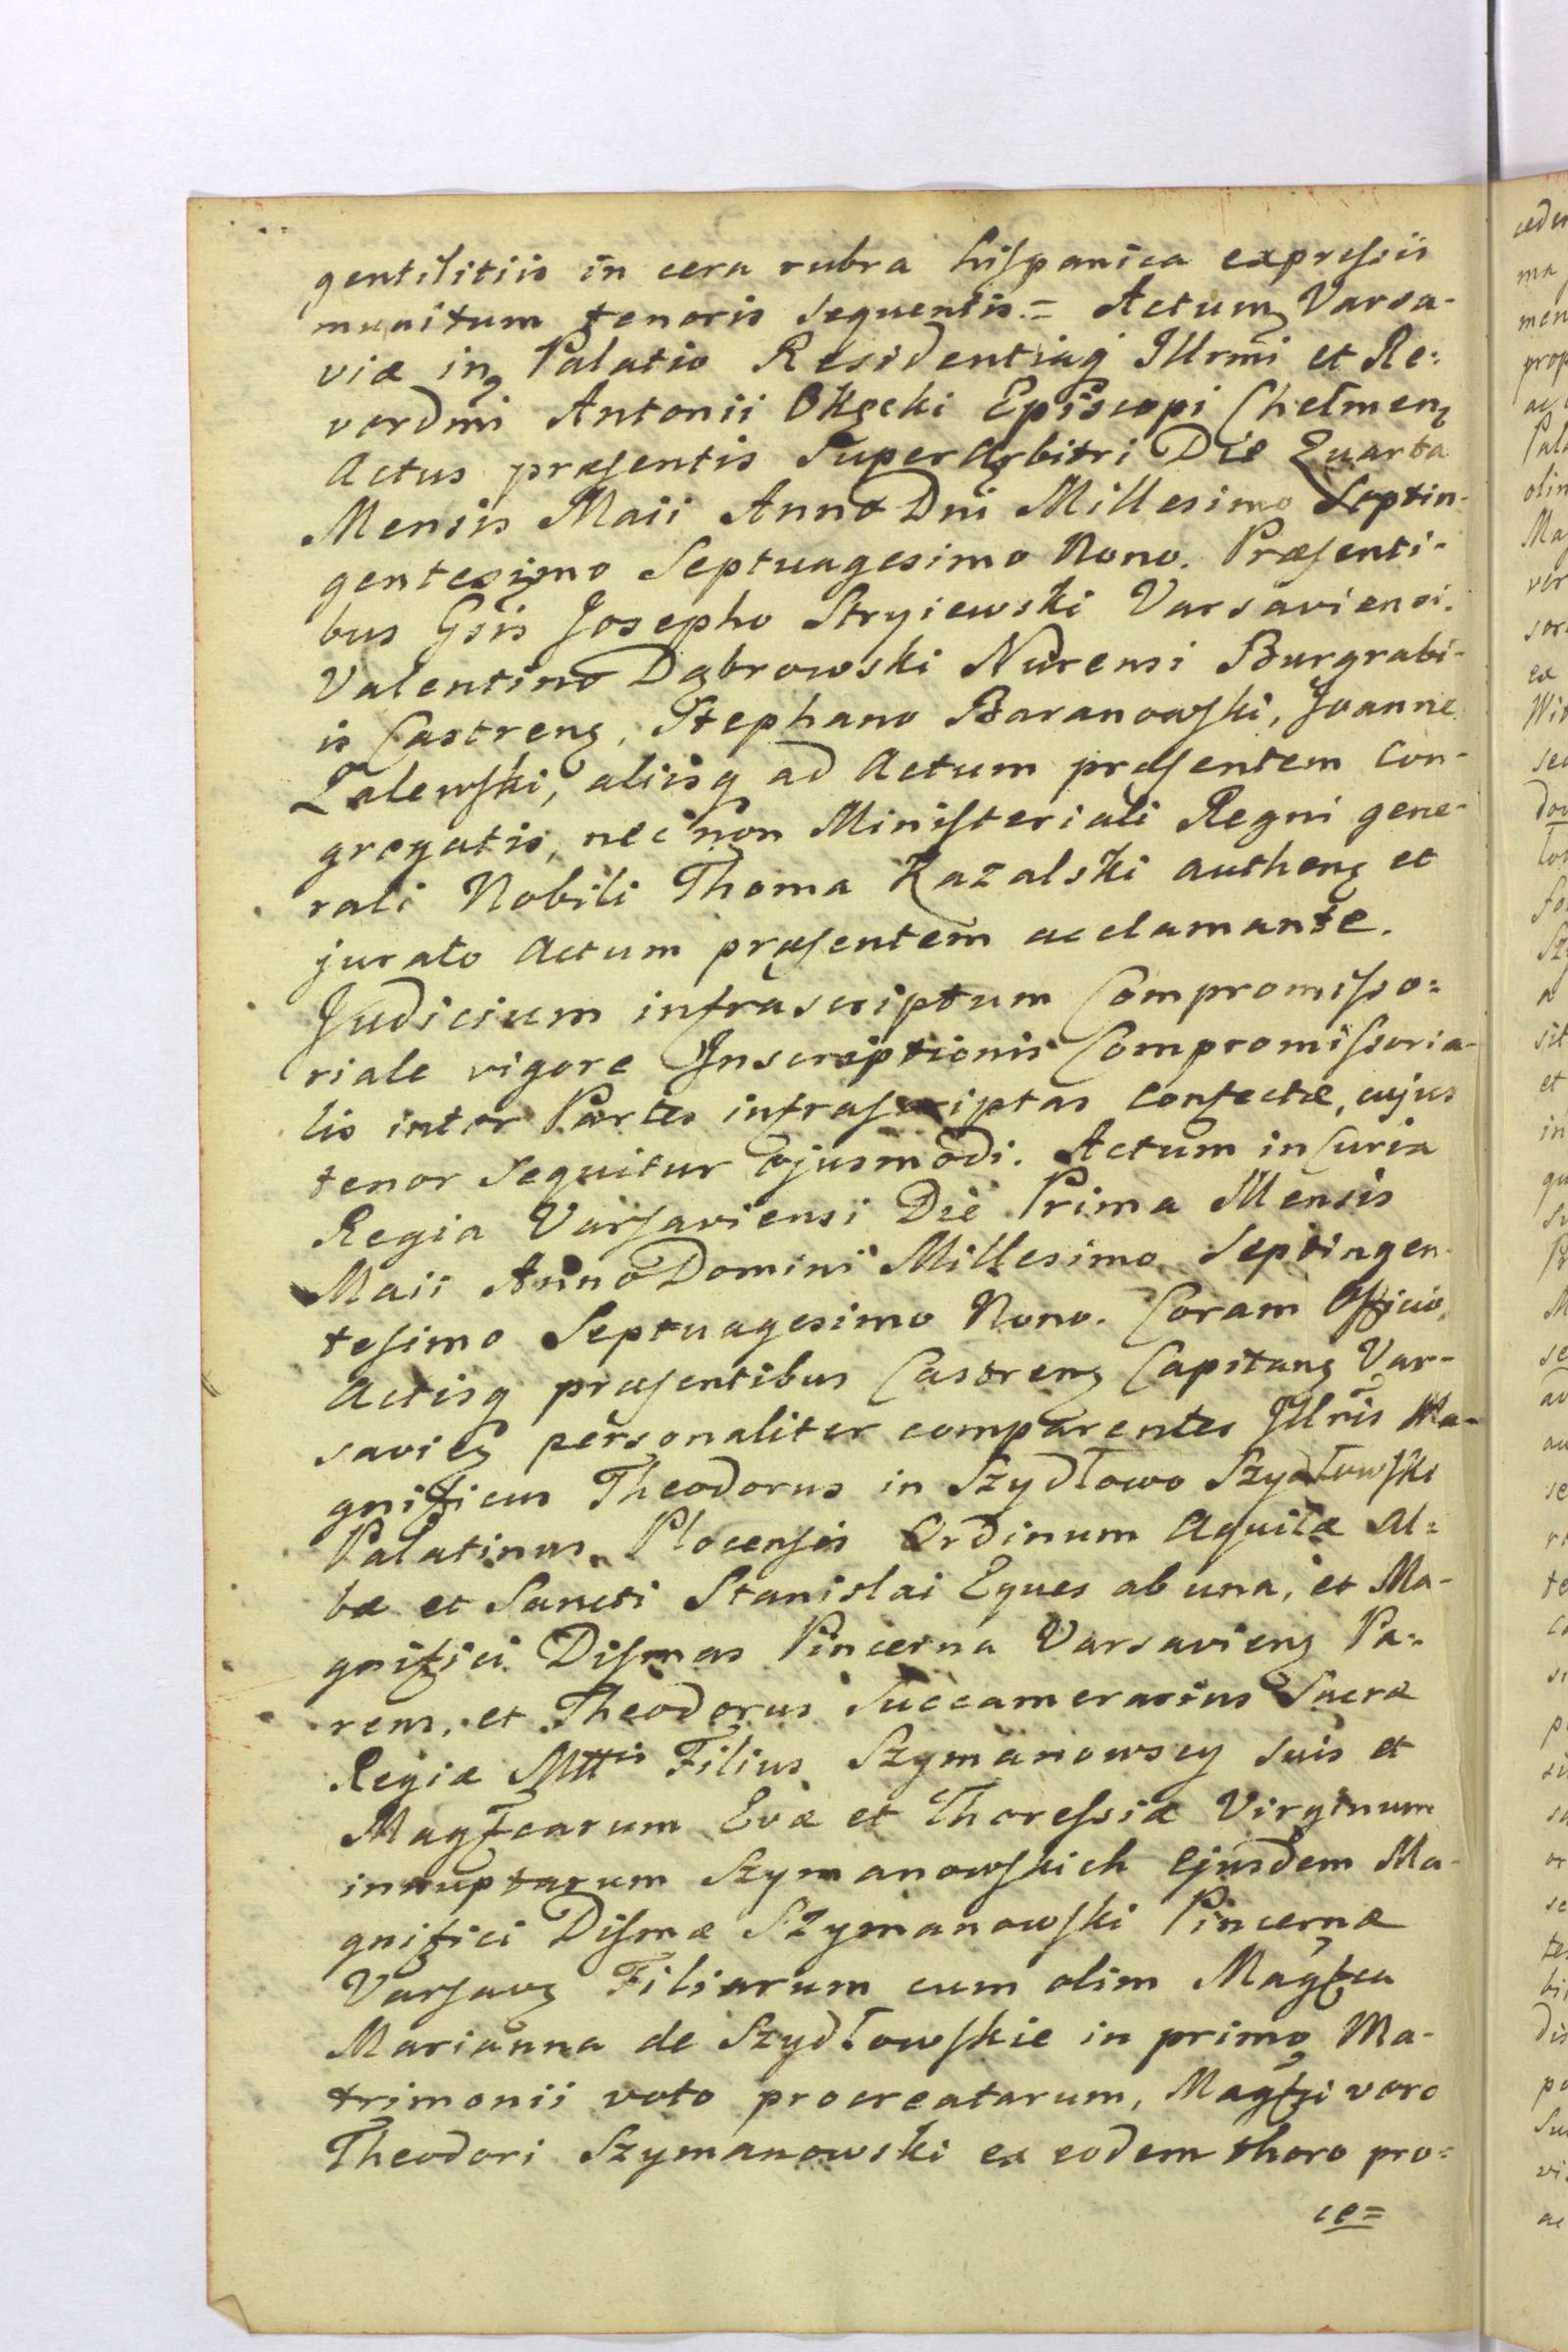 gentilitiis in cera rubra hiſpanica expreſsis
munitum tenoris sequentis. = Actum Varsa-
viæ in Palatio Residentiaꝗ Illrm̃i et Re:
verdm̃i Antonii Okęcki Episcopi Chełmenꝫ
Actus præſentis SuperArbitri Die Quarta
Mensis Maii Anno Dn̄i Millesimo Septin-
gentesimo Septuagesimo Nono. Præſenti-
bus Gsis Josepho Stryiewski Varsaviensi.
Valentino Dąbrowski Nurensi Burgrabi-
is Castrenꝫ, Stephano Baranowſki, Joanne
Zalewſki, aliisꝗ ad Actum præſentem con-
gregatis, nec non Miniſteriali Regni gene-
rali Nobili Thoma Kazalski authenꝫ et
jurato Actum præſentem acclamante.
Judicium infrascriptum Compromiſso:
riale vigore Inscriptionis Compromiſsoria-
lis inter Partes infraſcriptas confectæ, cujus
tenor sequitur ejusmodi. Actum in Curia
Regia Varſaviensi Die Prima Mensis
Maii Anno Domini Millesimo Septingen-
teſimo Septuagesimo Nono. Coram Officio,
Actisꝗ præſentibus Castrenꝫ Capitanꝫ Var-
savieꝫ personaliter comparentes Illris Ma-
gnificus Theodorus in Szydłowo Szydłowſki
Palatinus Plocenſis Ordinum Aquilæ Al:
bæ et Sancti Stanislai Eques ab una, et Ma-
gnifici Diſmas Pincerna Varsavienꝫ Pa:
rens, et Theodorus Succamerarius Sacræ
Regiæ Mttis Filius Szymanowscy suis et
Magfcarum Evæ et Thereſsiæ Virginum
innuptarum Szymanowſkich ejusdem Ma-
gnifici Diſmæ Szymanowſki Pincernæ
Varſavꝫ Filiarum cum olim Magfca
Marianna de Szydłowſkie in primo Ma-
trimonii voto procreatarum, Magfci vero
Theodori Szymanowski ex eodem thoro pro:
ce=